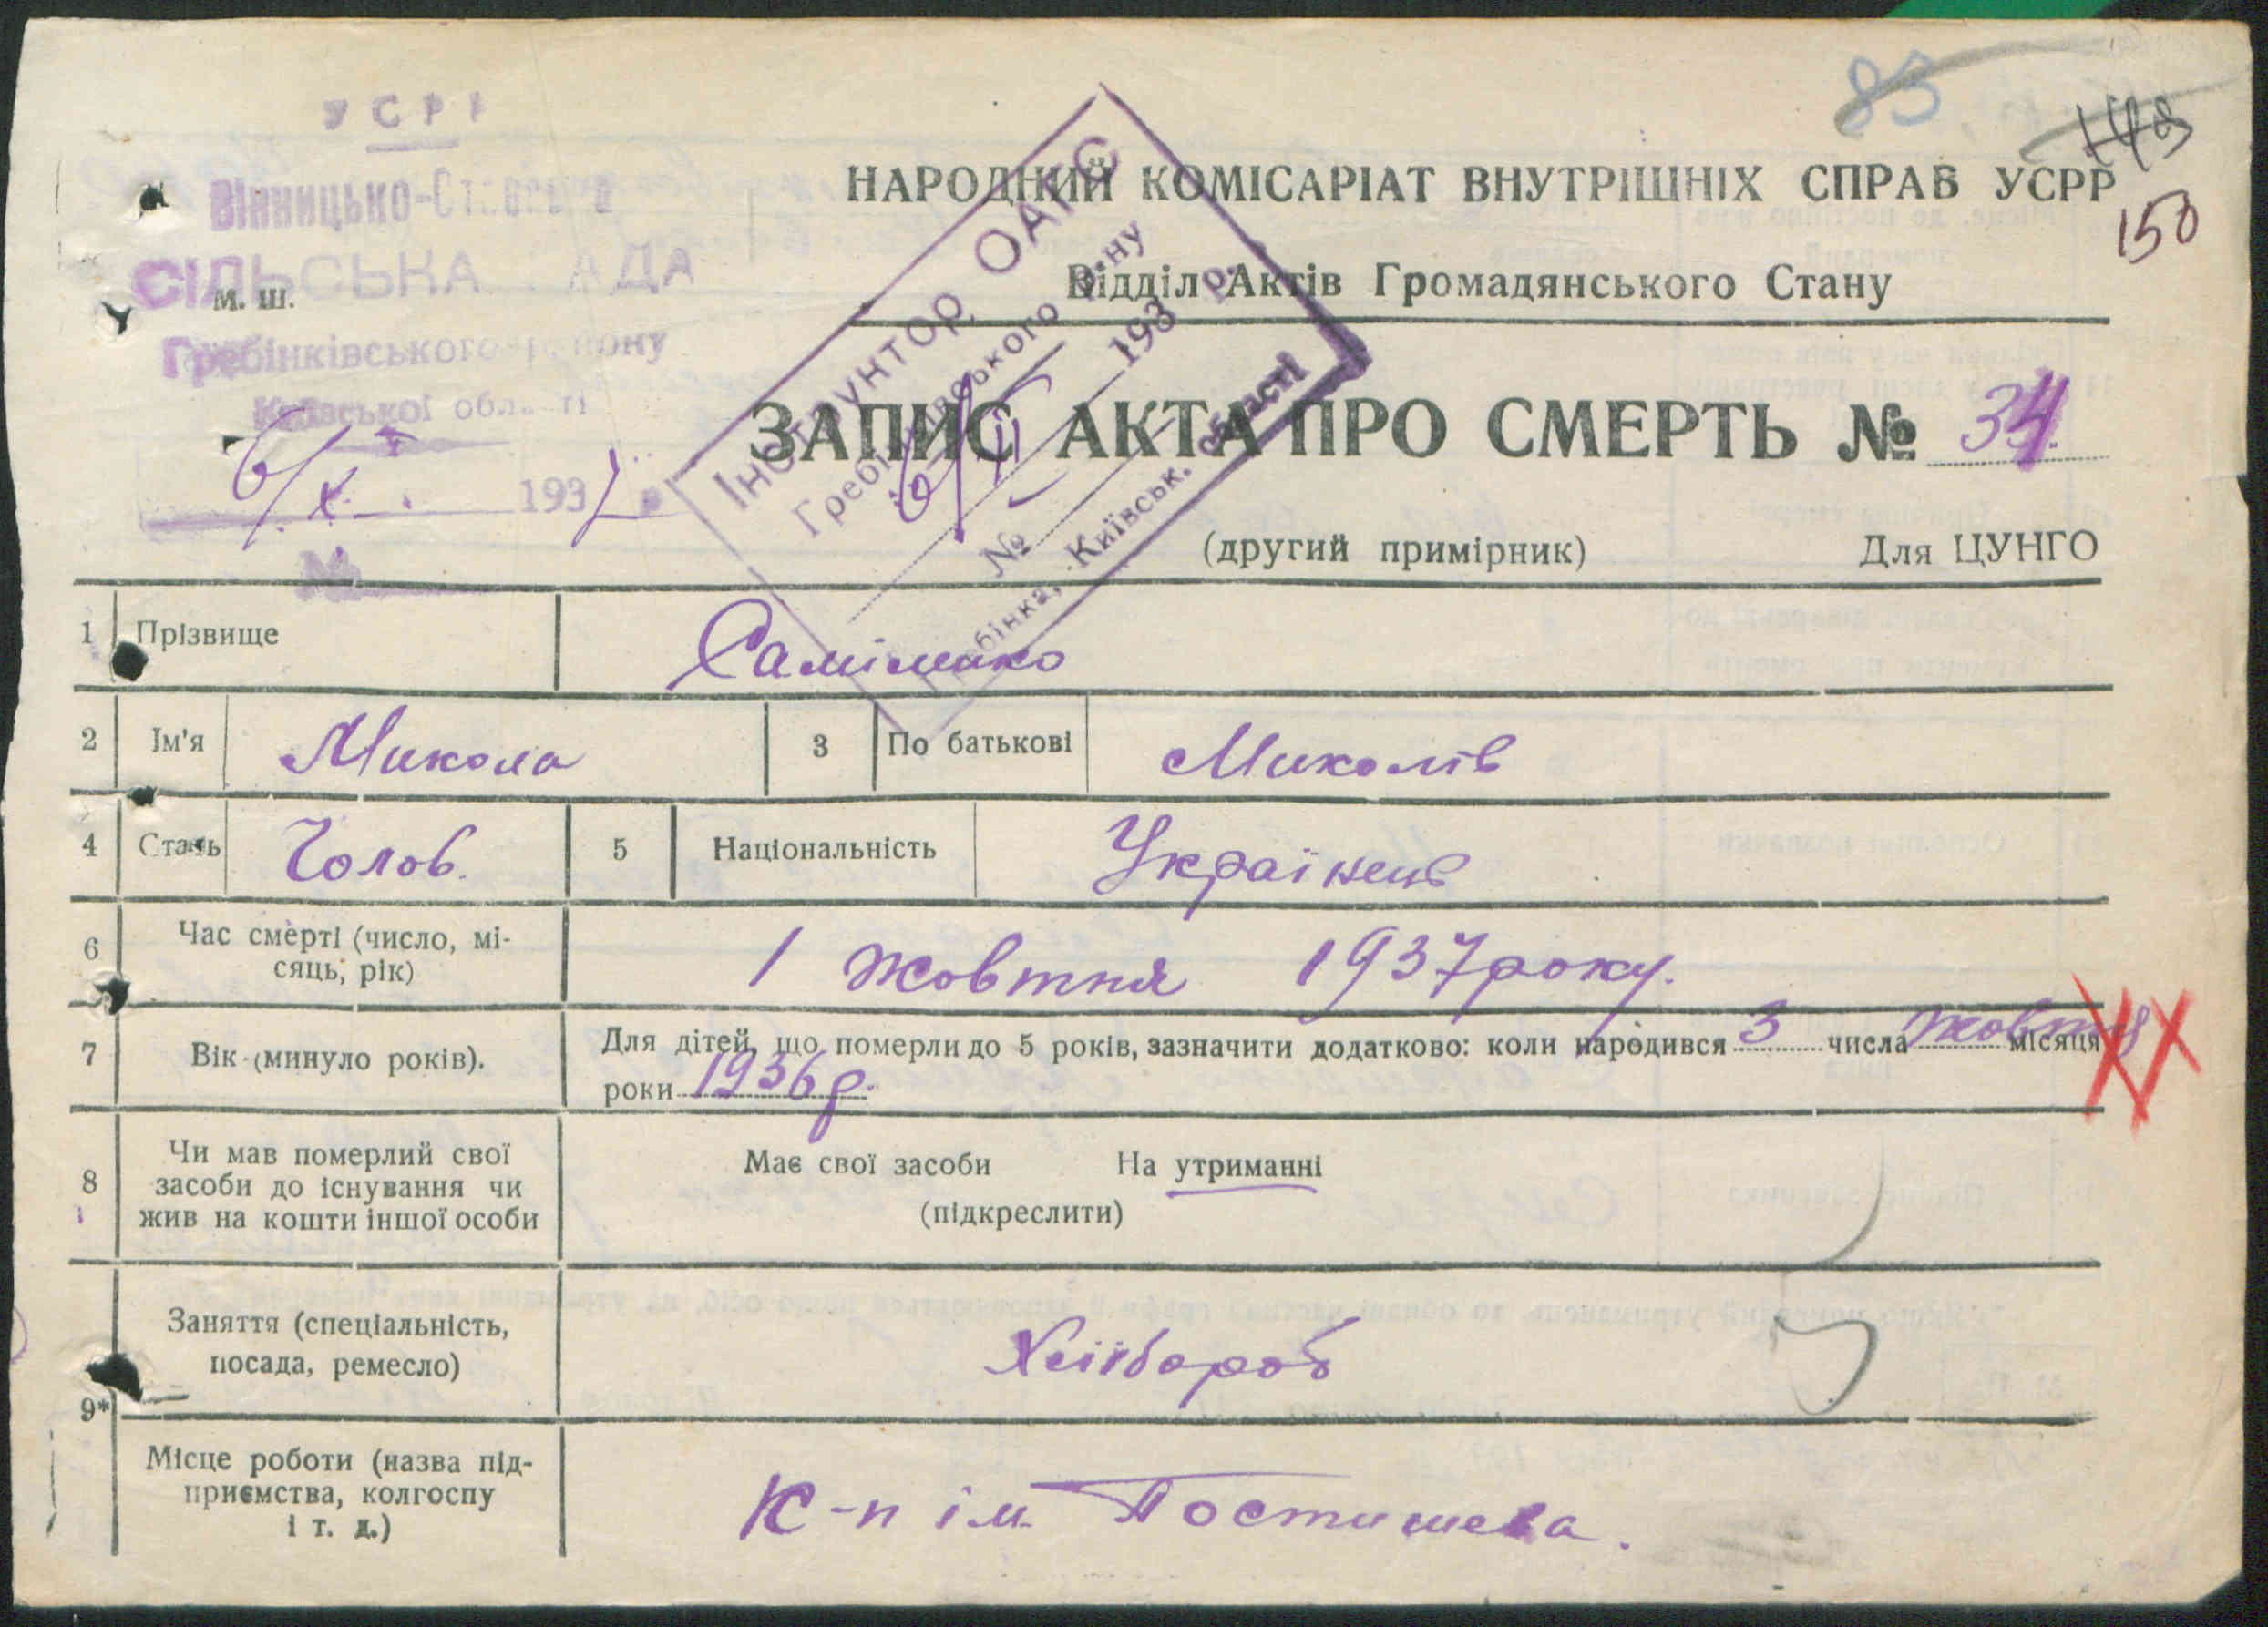 83
148
150
УСРР
Вінницько-Ставська
СІЛЬСЬКА РАДА
м. ш.
Гребінківського району
Київської області
6/X 1937
№
Інструктор ОАГС
Гребінківського р-ну
№ 193 р.
Гребінка, Київськ. області
НАРОДНИЙ КОМІСАРІАТ ВНУТРІШНІХ СПРАВ УСРР
Відділ Актів Громадянського Стану
ЗАПИС АКТА ПРО СМЕРТЬ № 34
(другий примірник) Для ЦУНГО
1 Прізвище
2 Ім'я Микола 3 По батькові Миколів
4 Стать Чолов. 5 Національність Українець
6 Час смерті (число, мі-
сяць, рік) 1 жовтня 1937 року.
7 Вік (минуло років). Для дітей, що померли до 5 років, зазначити додатково: коли народився 3 числа жовтня місяця
роки 1936 р.
8 Чи мав померлий свої
засоби до існування чи
жив на кошти іншої особи
Має свої засоби На утриманні
(підкреслити)
9* Заняття (спеціальність,
посада, ремесло) Хлібороб
Місце роботи (назва під-
приємства, колгоспу
і т. д.) К-п ім. Постишева.